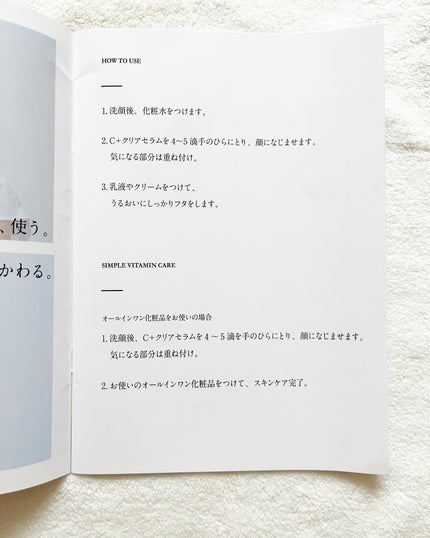 、使う。
かわる。
HOW TO USE
1. 洗顔後、化粧水をつけます。
2. C+クリアセラムを4〜5滴手のひらにとり、顔になじませます。
気になる部分は重ね付け。
3. 乳液やクリームをつけて、
うるおいにしっかりフタをします。
SIMPLE VITAMIN CARE
オールインワン化粧品をお使いの場合
1. 洗顔後、C+クリアセラムを4〜5滴を手のひらにとり、顔になじませます。
気になる部分は重ね付け。
2. お使いのオールインワン化粧品をつけて、スキンケア完了。